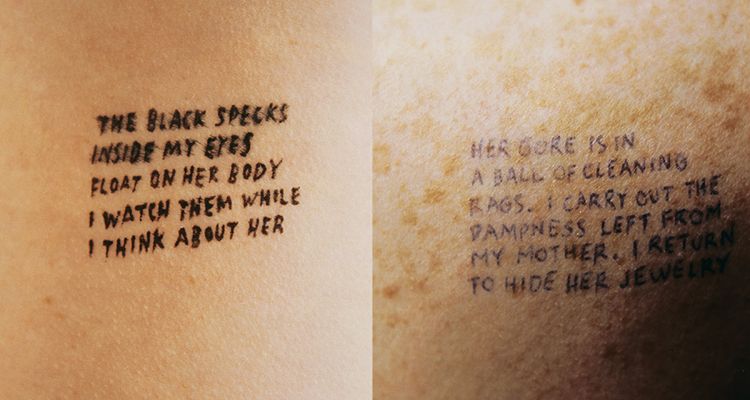 THE BLACK SPECKS
INSIDE MY EYES
FLOAT ON HER BODY
I WATCH THEM WHILE
I THINK ABOUT HER
HER GORE IS IN
A BALL OF CLEANING
RAGS. I CARRY OUT THE
DAMPNESS LEFT FROM
MY MOTHER. I RETURN
TO HIDE HER JEWELRY